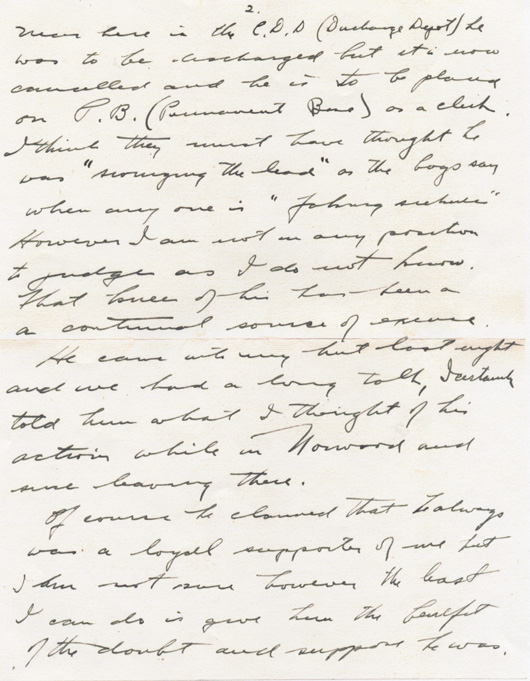 2.
here in the C.D.D (Discharge Depot) he
was to be discharged but it is now
cancelled and he is to be placed
on P.B. (Permanent Base) as a clerk.
I think they must have thought he
was "swinging the lead" as the boys say
when any one is "faking sickness"
However I am not in any position
to judge as I do not know.
That knee of his has been a
a continual source of excuse.
He came into my hut last night
and we had a long talk, I certainly
told him what I thought of his
action while in Norwood and
since leaving there.
Of course he claimed that he always
was a loyal supporter of me but
I am not sure however the least
I can do is give him the benefit
of the doubt and suppose he was.